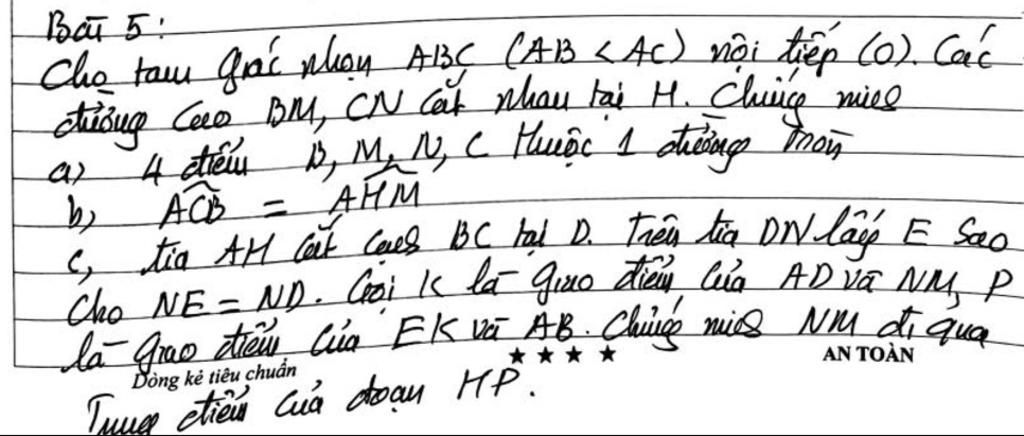 Bài 5:
Cho tam giác nhọn ABC (AB < AC) nội tiếp (O). Các
đường cao BM, CN cắt nhau tại H. Chứng minh
a) 4 điểm B, M, N, C thuộc 1 đường tròn
b, ACB = AHM
c, tia AH cắt cạnh BC tại D. Trên tia DN lấy E sao
Cho NE = ND. Gọi K là giao điểm của AD và NM, P
là giao điểm của EK và AB. Chứng minh NM đi qua
Dòng kẻ tiêu chuẩn ★★★★ AN TOÀN
Trung điểm của đoạn HP.